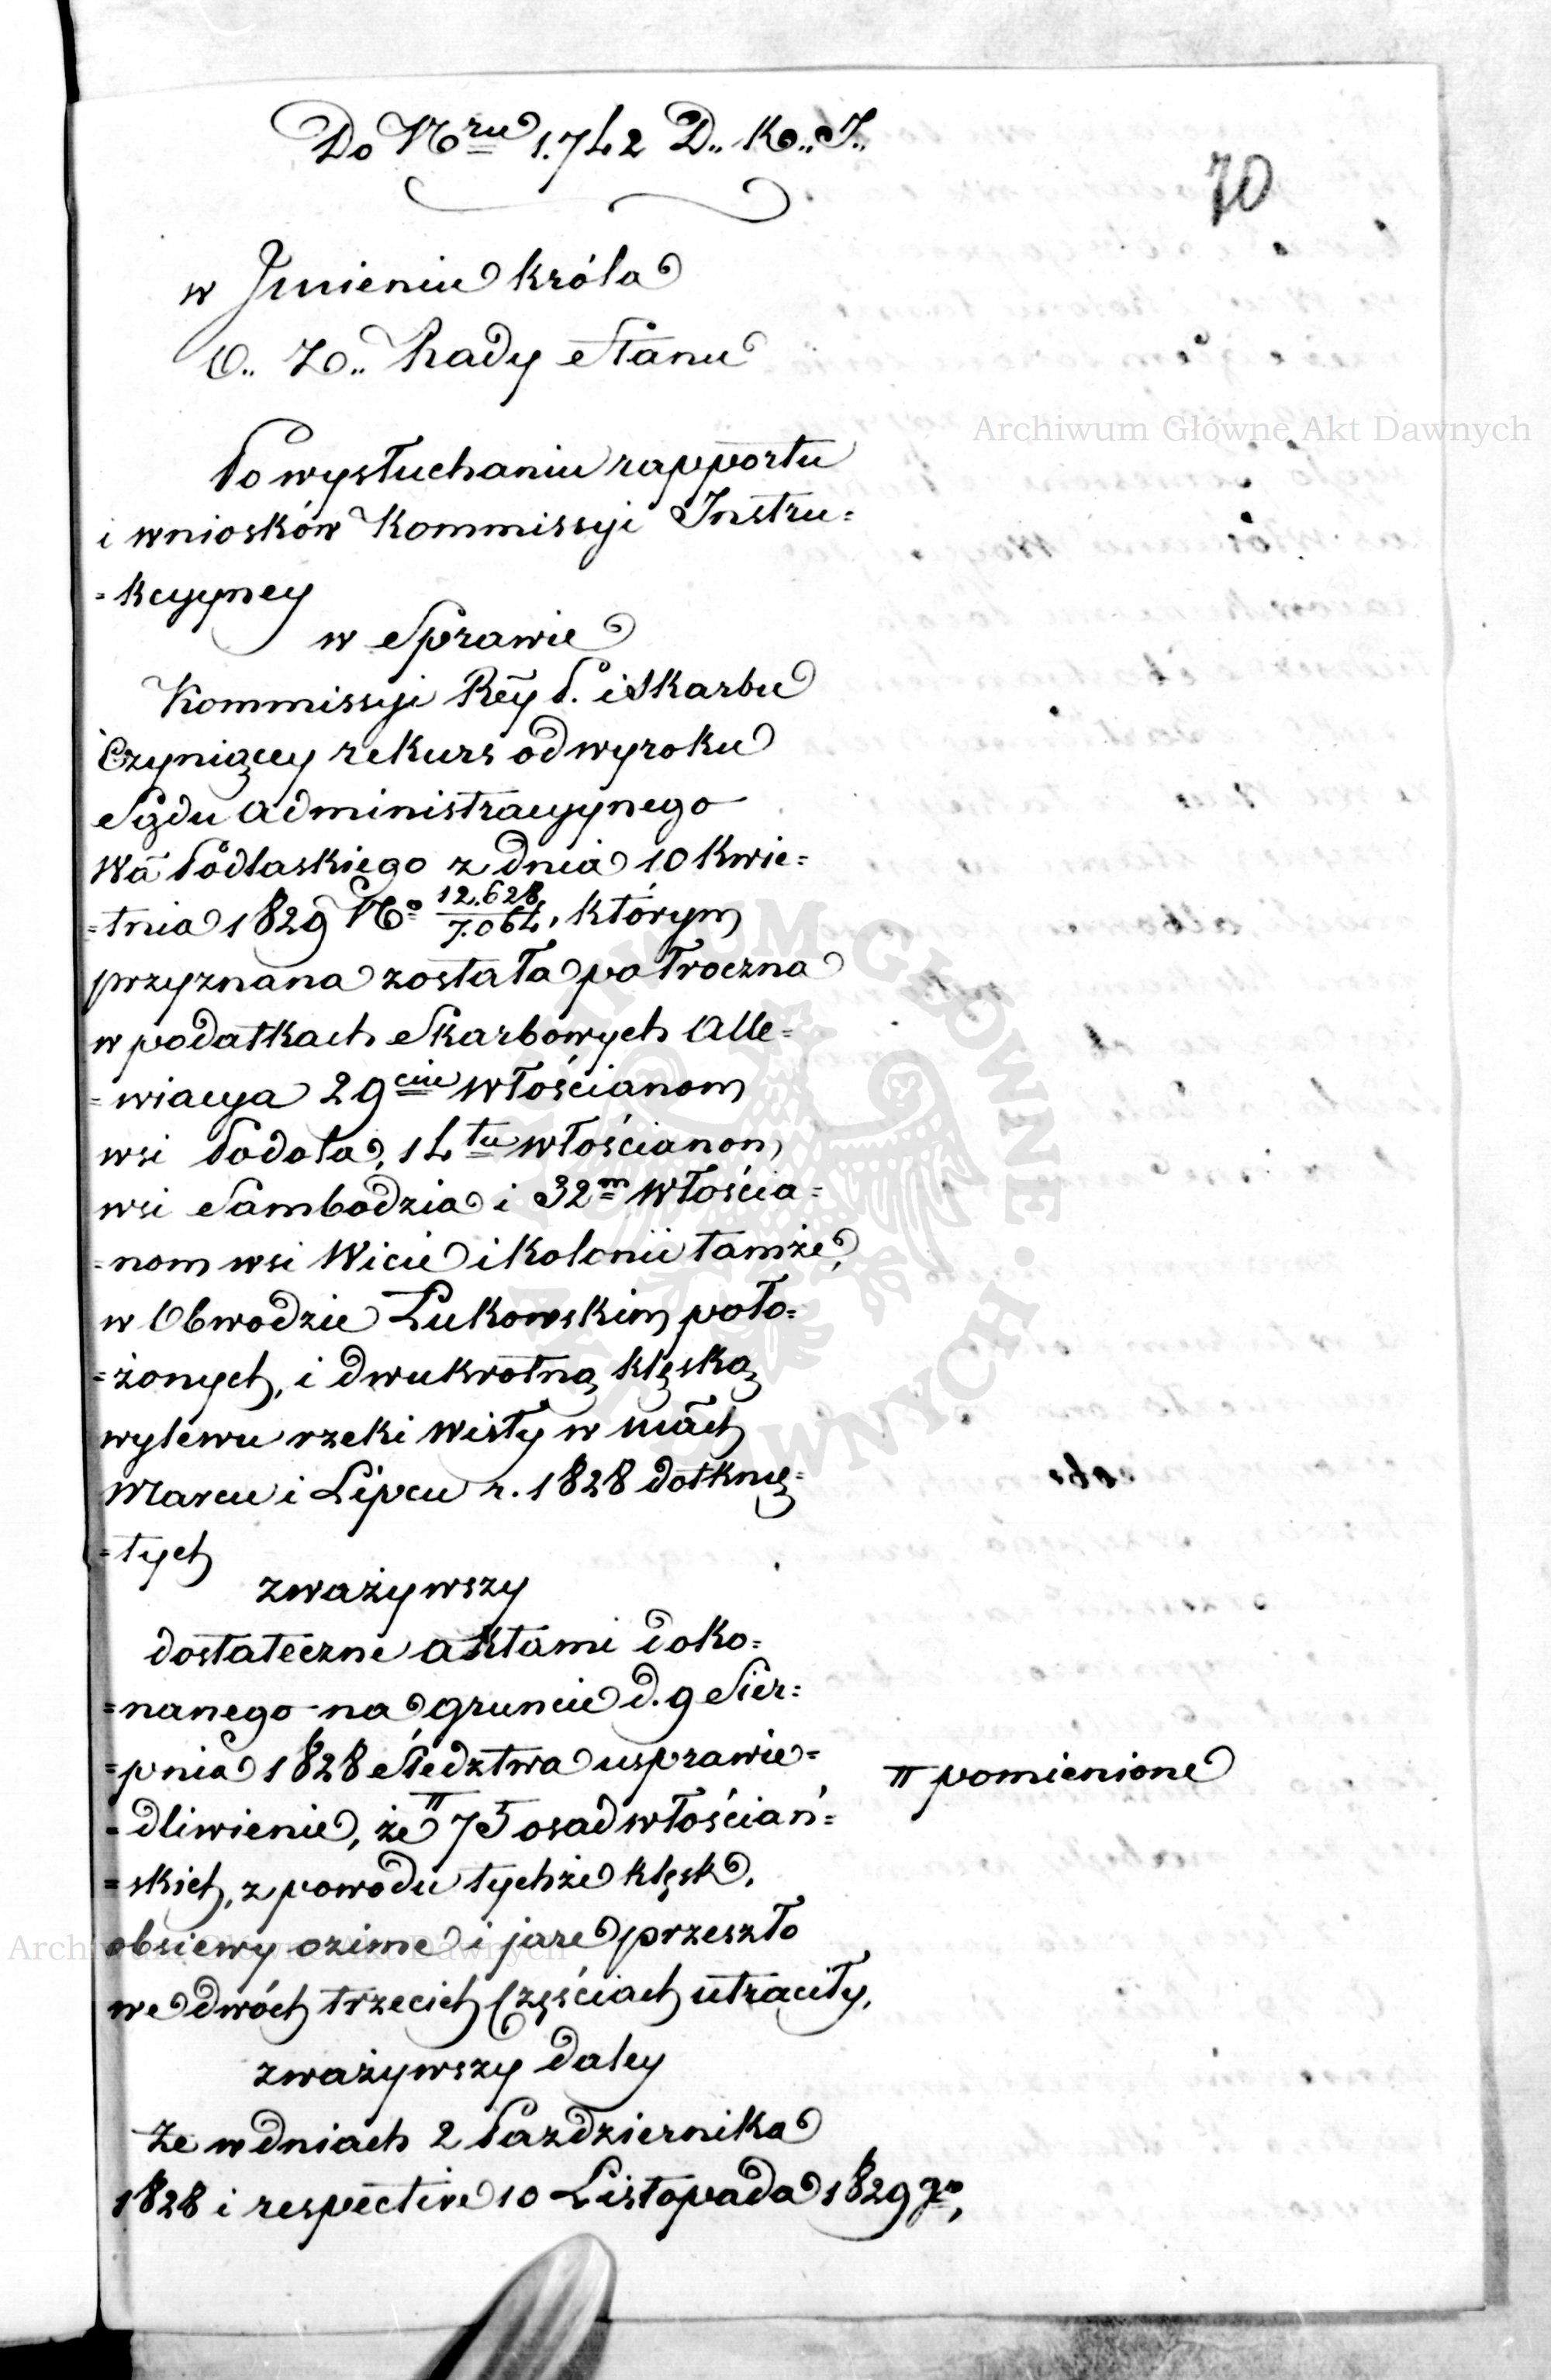 Do Nru 1.742 D.. K.. I..
70
w Jmieniu Króla
O.. Z.. Rady Stanu
Archiwum Główne Akt Dawnych
Po wysłuchaniu rapportu
i wniosków Kommissyi Instru=
=kcyyney
w Sprawie
Kommissyi Rẽy P. i Skarbu
Czyniącey rekurs od wyroku
Sądu Administracyynego
Wã Podlaskiego z dnia 10 Kwie=
=tnia 1829 No 12.628/7.064, którym
przyznana została połroczna
w podatkach Skarbowych Alle=
=wiacya 29ciu włościanom
wsi Podola, 14tu włościanom
wsi Sambodzia i 32m włościa=
=nom wsi Wicie i Kolonii tamże,
w Obwodzie Łukowskim poło=
=żonych, i dwukrotną klęską
wylewu rzeki Wisły w mcãch
Marcu i Lipcu r. 1828 dotknię=
=tych
zważywszy
dostateczne aktami doko=
=nanego na gruncie d. 9 Sier=
=pnia 1828 Śledztwa usprawie=
=dliwienie, że π 75 osad włościań=
π pomienione
=skich, z powodu tychże klęsk,
obsiewy ozime i jare przeszło
we dwóch trzecich częściach utraciły,
Archiwum Główne Akt Dawnych
zważywszy daley
Że w dniach 2 Pazdziernika
1828 i respective 10 Listopada 1829 go,
ARCHIWUM GŁÓWNE · AKT DAWNYCH ·